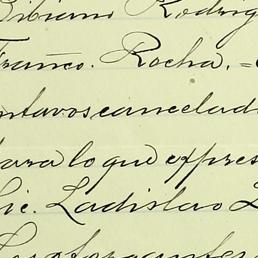 Bibiano Rodrig
Franco. Rocha. =
ntavos cancelad
para lo que expres
Lic. Ladislao